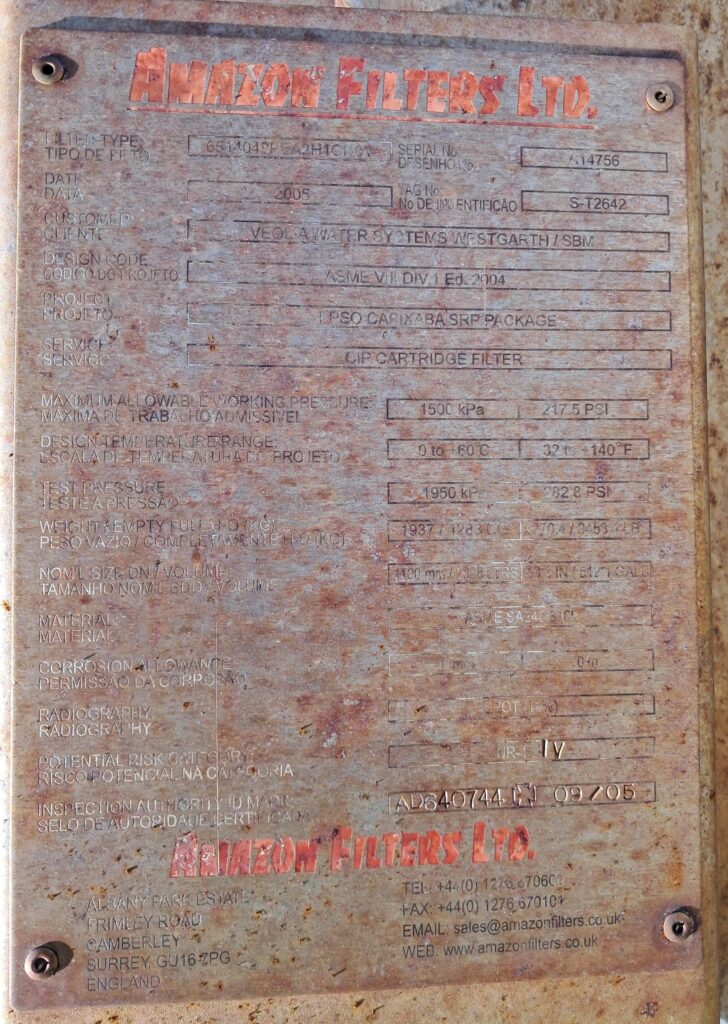 AMAZON FILTERS LTD.
FILTER TYPE
TIPO DE FILTRO
SERIAL No
DESENHO No
A14756
DATE
DATA
2005
TAG No.
No DE INDENTIFICAÇÃO
S-T2642
CUSTOMER
CLIENTE
VEOLIA WATER SYSTEMS WESTGARTH / SBM
DESIGN CODE:
CODIGO DO PROJETO
ASME VIII DIV 1 Ed. 2004
PROJECT
PROJETO
FPSO CAPIXABA SRP PACKAGE
SERVICE
SERVICO
CIP CARTRIDGE FILTER
MAXIMUM ALLOWABLE WORKING PRESSURE:
MÁXIMA DE TRABALHO ADMISSÍVEL
1500 kPa 217.5 PSI
DESIGN TEMPERATURE RANGE:
ESCALA DE TEMPERATURA DO PROJETO
0 to +60°C 32 to +140°F
TEST PRESSURE
TESTE A PRESSÃO
1950 kPa 282.8 PSI
WEIGHT / EMPTY FULL H2O (KG)
PESO VAZIO / COMPLETAMENTE H2O (KG)
NOM'L SIZE DN / VOLUME
TAMANHO NOM'L VOLUME
MATERIAL:
MATERIAL
ASME
CORROSION ALLOWANCE
PERMISSÃO DA CORROSÃO
RADIOGRAPHY:
RADIOGRAPHY
SPOT
POTENTIAL RISK CATEGORY
RISCO POTENCIAL NA CATEGORIA
IV
INSPECTION AUTHORITY ID MARK:
SELO DE AUTORIDADE CERTIFICADA
AD640744 09/05
AMAZON FILTERS LTD.
ALBANY PARK ESTATE
FRIMLEY ROAD
CAMBERLEY
SURREY, GU16 7PG
ENGLAND
TEL: +44(0) 1276 670600
FAX: +44(0) 1276 670101
EMAIL: sales@amazonfilters.co.uk
WEB: www.amazonfilters.co.uk